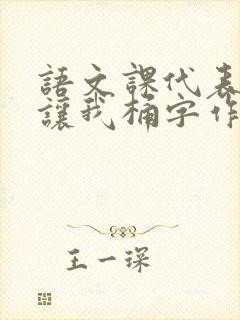 語文課代表
讓我桶字作
王一琛